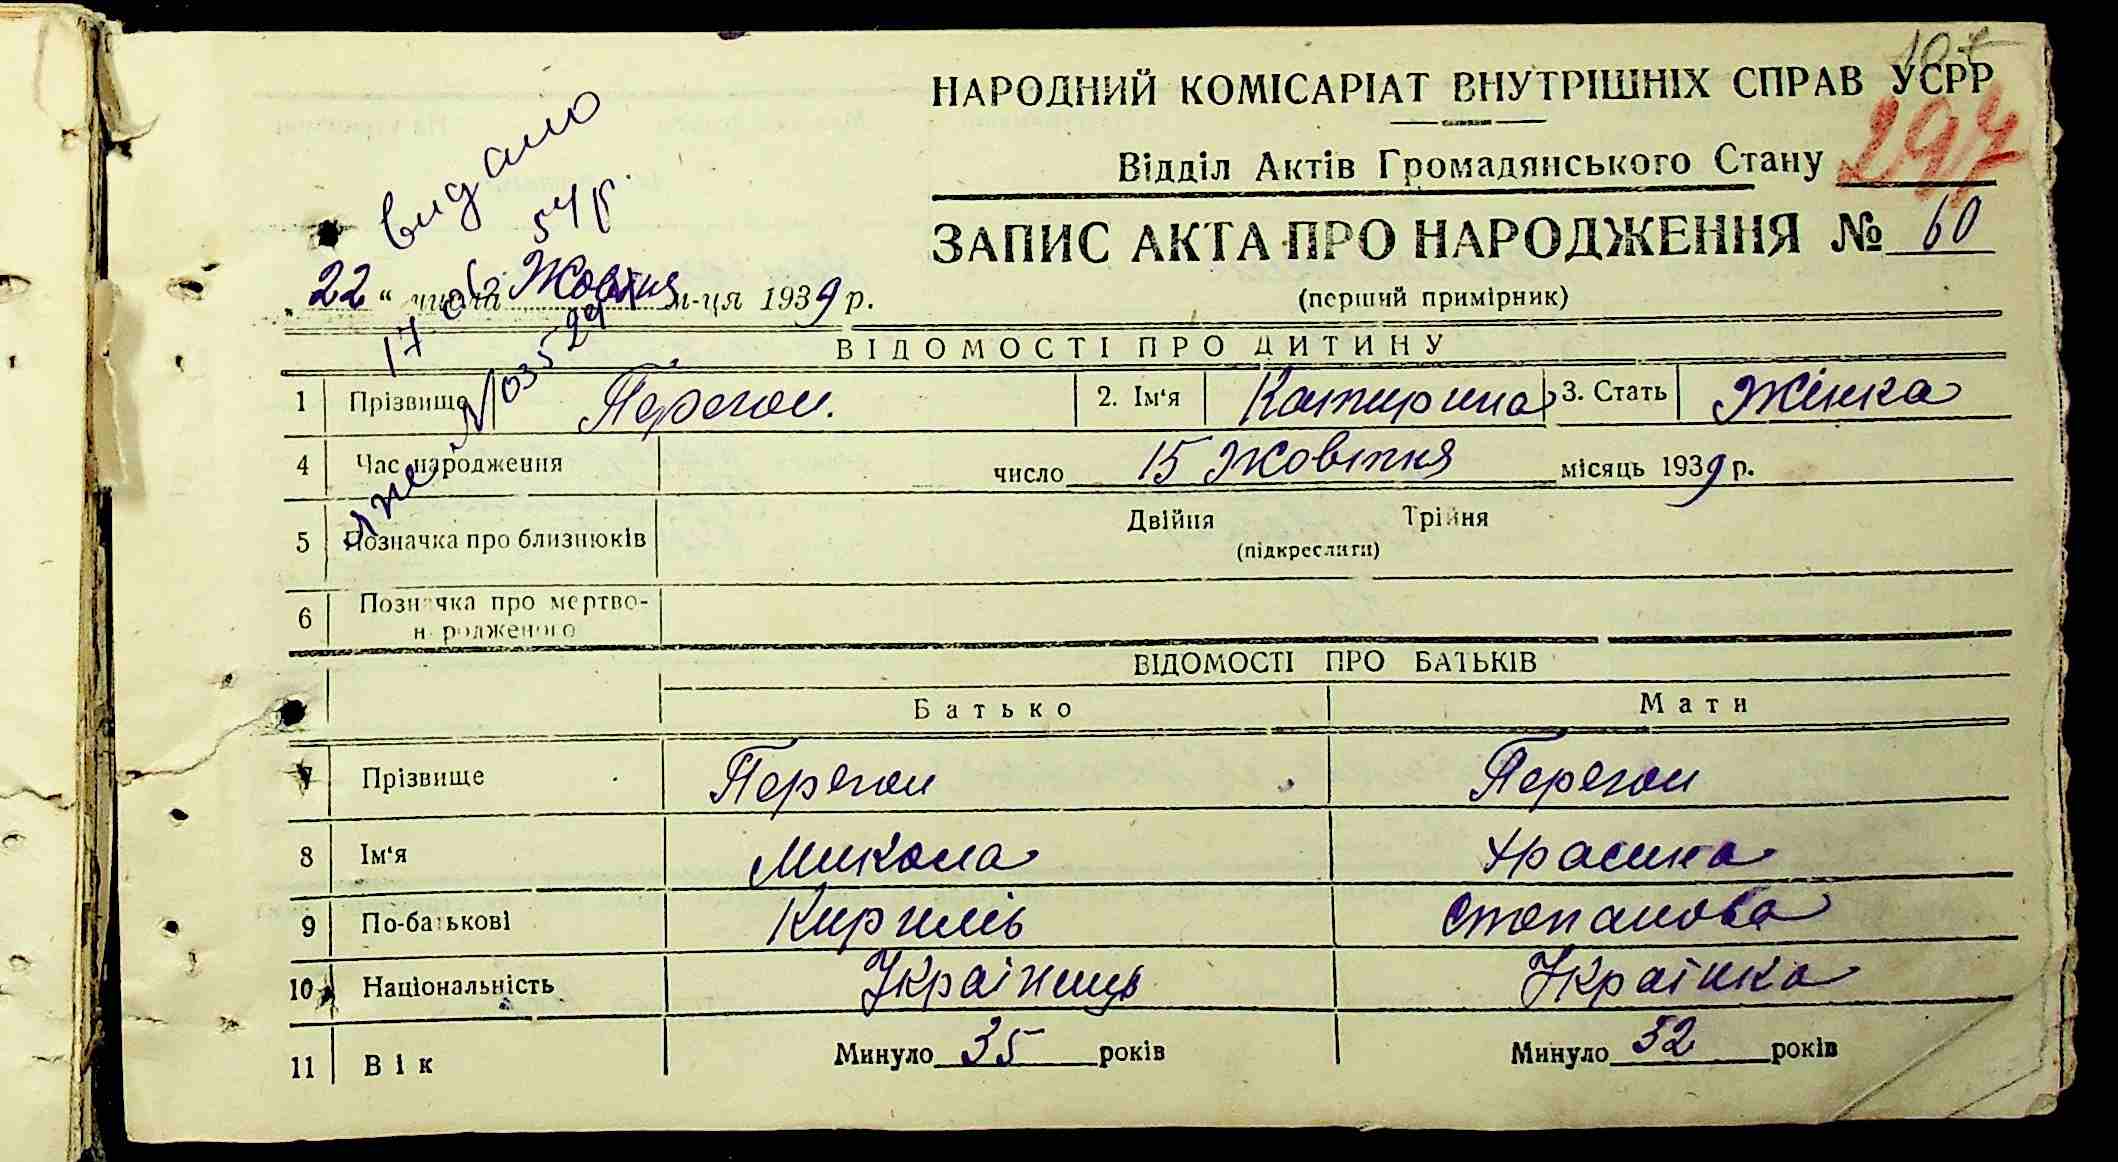 107
НАРОДНИЙ КОМІСАРІАТ ВНУТРІШНІХ СПРАВ УСРР
297
Відділ Актів Громадянського Стану
видано
54 р.
ЗАПИС АКТА ПРО НАРОДЖЕННЯ № 60
(перший примірник)
„22“ числа Жовтня м-ця 1939 р.
17
ВІДОМОСТІ ПРО ДИТИНУ
1 Прізвище Перегон. 2. Ім'я Катирина 3. Стать Жінка
4 Час народження число 15 Жовтня місяць 1939 р.
5 Позначка про близнюків Двійня Трійня
(підкреслити)
6 Позначка про мертво-
народженого
ВІДОМОСТІ ПРО БАТЬКІВ
Батько Мати
7 Прізвище Перегон Перегон
8 Ім'я Микола
9 По-батькові Кирилів Степанова
10 Національність Українець Українка
11 Вік Минуло 35 років Минуло 32 років